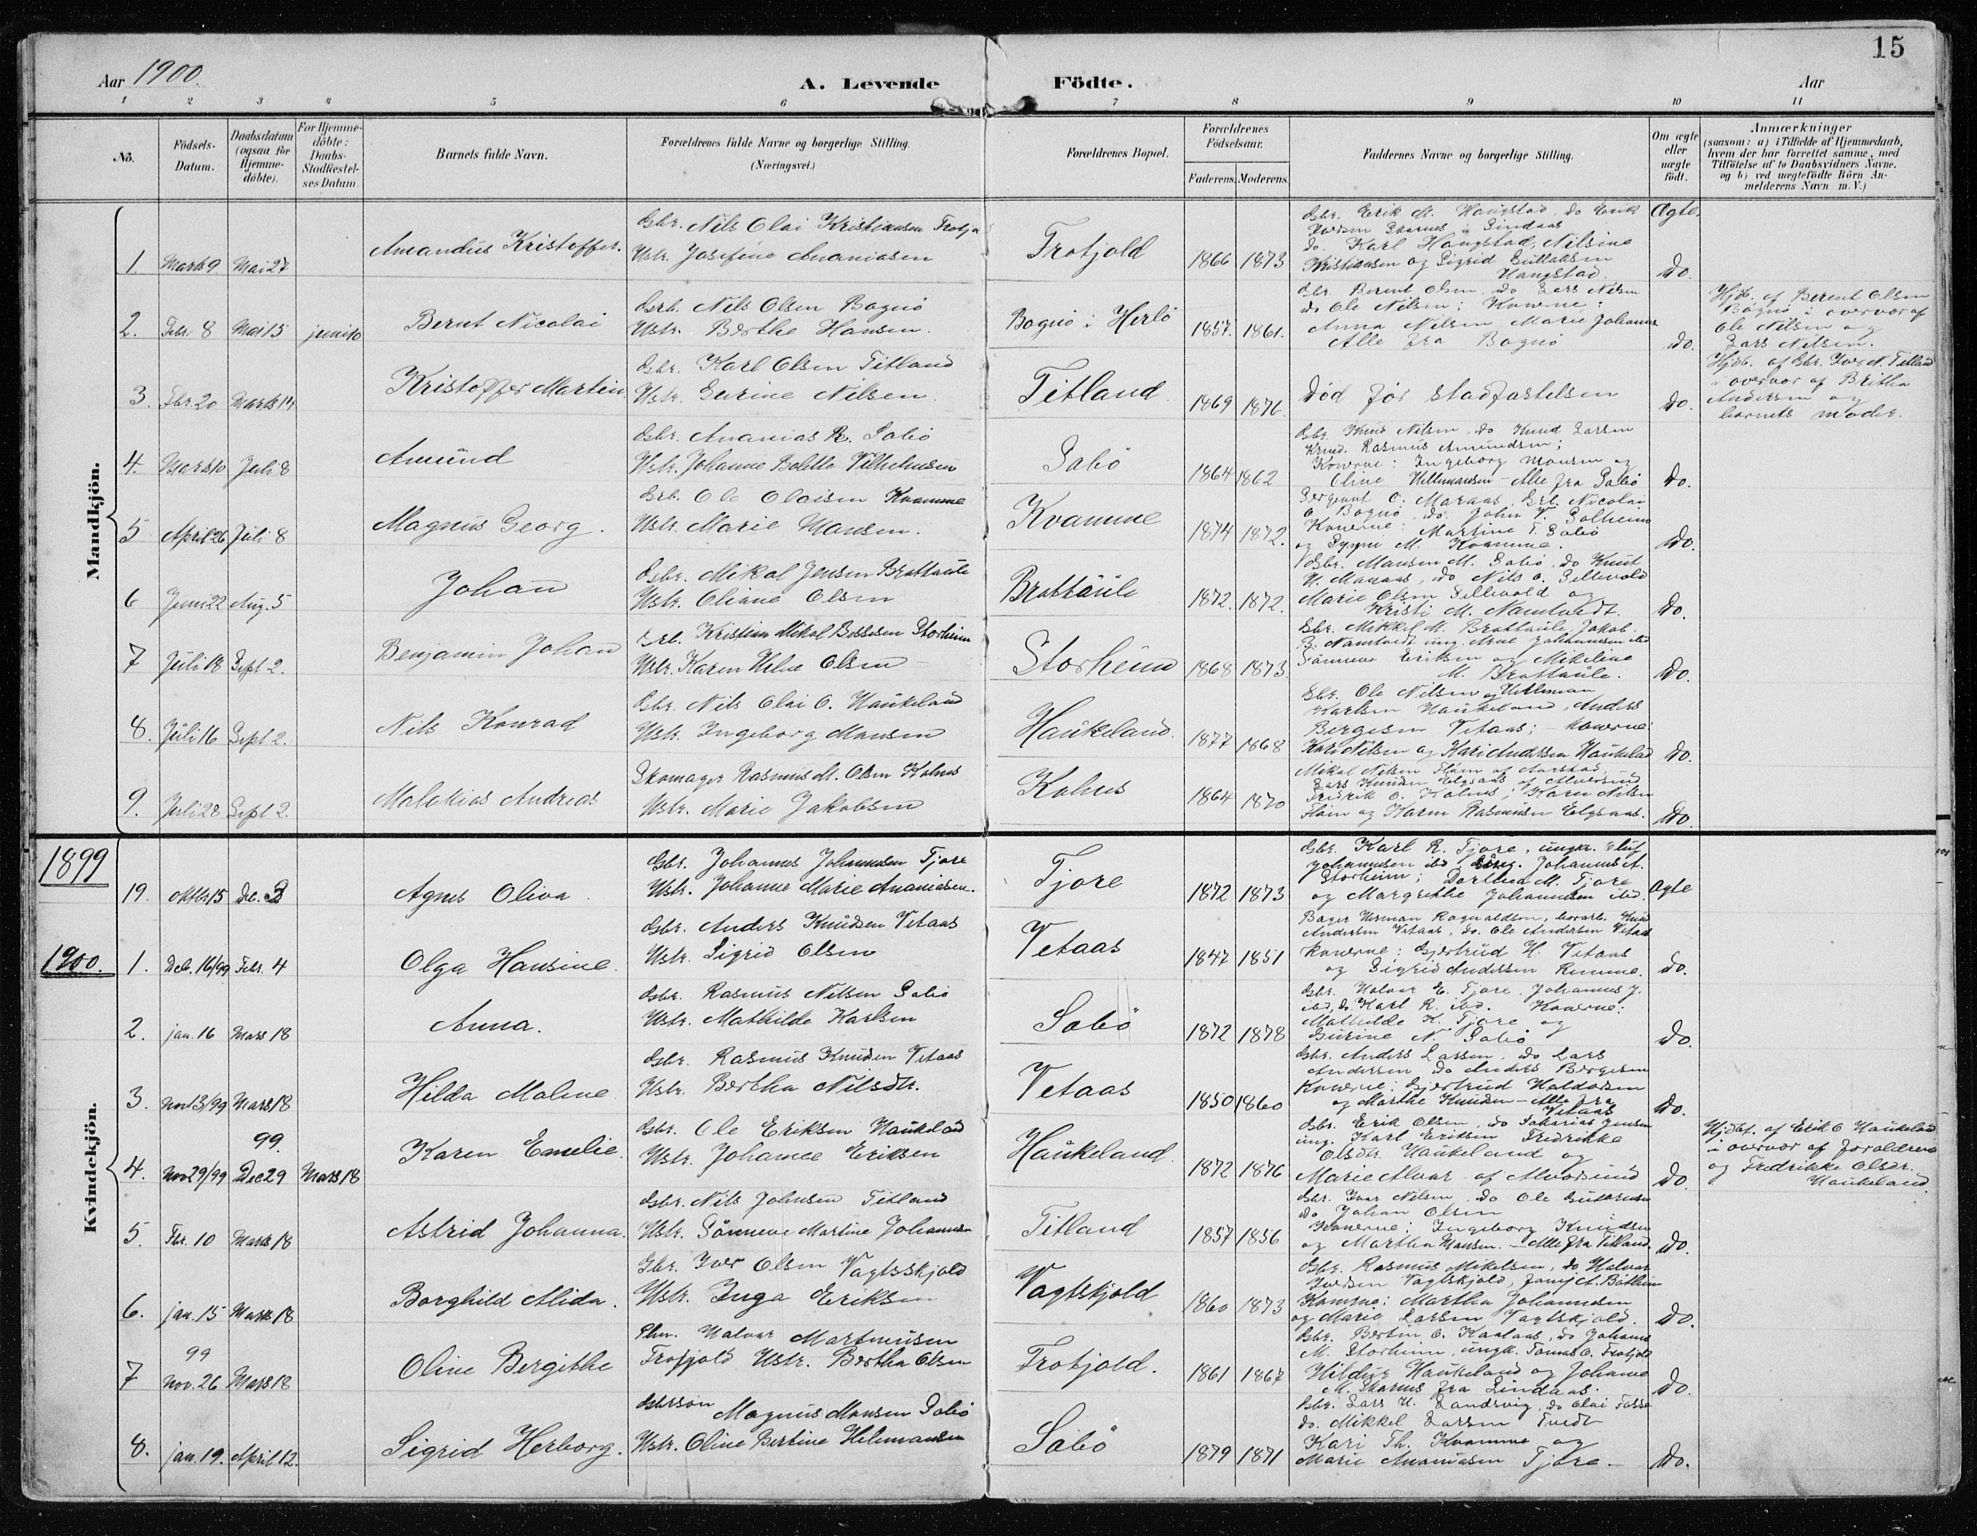 15
Aar 1900.
A. Levende Födte.
Aar
1 2 3 4 5 6 7 8 9 10 11
No.
Födsels-Datum.
Daabsdatum (ogsaa for Hjemme-döbte).
For Hjemme-döbte: Daabs-Stadfæstel-ses Datum.
Barnets fulde Navn.
Forældrenes fulde Navne og borgerlige Stilling. (Næringsvei.)
Forældrenes Bopæl.
Forældrenes Födselsaar.
Faderens. Moderens.
Faddernes Navne og borgerlige Stilling.
Om ægte eller uægte födt.
Anmærkninger
(saasom: a) i Tilfælde af Hjemmedaab, hvem der har forrettet samme, med Tilföielse af to Daabsvidners Navne, og b) ved uægtefödte Börn Anmelderens Navn m. V.)
Mandkjön.
1 Marts 9 Mai 27 Amandus Kristoffer.
Gbr. Nils Olai Kristiansen
Hstr. Josefine Ananiasen
Trotjold 1866 1873
Gbr. Erik M. Haugstad, do Erik
do. Karl Haugstad, Nilsine
Kristiansen og Sigrid
Haugstad.
Ægte
Do.
2. Febr. 8 Mai 15 juni 10 Bernt Nicolai
Grb. Nils Olsen Bognö
Hstr. Berthe Hansen.
Bognö i Herlö 1857. 1861.
Gbr. Berent Olsen, do Lars Nilsen
do Ole Nilsen; Konerne:
Anna Nilsen Marie Johanns
Alle fra Bognö
Do.
Hjdb. af Berent Olsen
Bognö i overvær af
Ole Nilsen og
Lars Nilsen.
3. Fbr. 20 Marts 14 Kristoffer Martin
Gbr. Karl Olsen Titland
Hstr. Gurine Nilsen.
Titland. 1869 1876.
Död för stadfæstelsen
Do.
Hjdb. af Gbr. Iver N. Titland
i overvær af Britha
Andersen og
barnets moder.
4. Marts 10 Juli 8 Amund
Gbr. Ananias R. Sabö
Hstr. Johanne Bolette Vilhelmsen
Sabö 1864 1862
Gbr. Knud Nilsen, do Knud Larsen
Knud. Rasmus Amundsen;
Konerne: Ingeborg Monsen og
Oline Hillemansen - Alle fra Sabö
Do.
5 April 26 Juli 8 Magnus Georg.
Grb. Ole Olaisen Kvamme
Hstr. Marie Hansen.
Kvamme 1874 1872.
Sergeant O. Maraas, Grb. Nicolai
O. Bognö, do. John V. Solheim
Konerne: Martine T. Sabö
og M. Kvamme.
Do.
6 Juni 22 Aug. 5 Johan
Gbr. Mikal Jensen Brattaule
Hstr. Oliane Olsen
Brattaule 1872. 1872.
Gbr. Mansen M. Sabö, do Knut
N. Maraas, do Nils O. Sellevold
Marie Olsen Sellevold og
Kristi M. Namtvedt.
Do.
7 Juli 18 Sept 2. Benjamin Johan
Grb. Kristian Mikal Storheim
Hstr. Karen Olsen
Storheim 1868 1873
Gbr. Mikkel M. Brattaule, Jakob
R. Namtvedt ung. Arne Johannesen ibd
Sönneve Eriksen og Mikeline
M. Brattaule.
Do.
8. Juli 16 Sept 2. Nils Konrad
Gbr. Nils Olai O. Haukeland
Hstr. Ingeborg Monsen
Haukeland. 1877 1868
Gbr. Ole Nilsen og Hilleman
Karlsen Haukeland, Anders
Birgesen Vetaas; Konerne:
Kari Nilsen og Kari Andersen Haukeland
Do.
9. Juli 28 Sept 2. Malakias Andreas
Skomager Rasmus M. Olsen Kolnes
Hstr. Marie Jakobsen
Kolnes 1864 1870
Mikal Nilsen
Lars Knudsen Elgsaas af Alversund
Fredrik O. Kolnes; Karen Nilsen
og Karen Rasmusen Elgsaas.
Do.
Kvindekjön.
1899
19. Oktbr 15 Dec. 3 Agnes Oliva.
Gbr. Johannes Johannesen Tjore
Hstr. Johanne Marie Ananiasen.
Tjore 1872 1873
Gbr. Karl R. Tjore, ungk. Eluf
Johannesen ibd ung. Johannes A.
Storheim; Dorthea M. Tjore
og Margrethe Johannesen ibd.
Ægte
1900.
1. Deb. 16/99 Febr. 4 Olga Hansine.
Gbr. Anders Knudsen Vetaas
Hstr. Sigrid Olsen
Vetaas 1847 1851
Bager Herman Ragnvaldsen, Knud
Andersen Vetaas, do. Ole Andersen Vetaas
Konerne: Gjertrud H. Vetaas
og Sigrid Andersen
Do.
2. jan. 16 Mars 18 Anna.
Gbr. Rasmus Nilsen Sabö
Hstr. Mathilde Karlsen
Sabö 1872 1878
Gbr. Halvar E. Tjore, Johannes J.
ibd, do Karl R. ibd. Konerne:
Mathilde K. Tjore og
Gurine N. Sabö
Do.
3. Nov 13/99 Mars 18 Hilda Malene
Gbr. Rasmus Knudsen Vetaas
Hstr. Bertha Nilsdtr.
Vetaas 1850 1860
Gbr. Anders Larsen, do Lars
Andersen do Anders Bergesen
Konerne: Gjertrud Haldorsen
og Marthe Knudsen - Alle fra
Vetaas
Do.
4. Nov 29/99 Dec 29 99. Mars 18 Karen Emelie.
Gbr. Ole Eriksen Haukeland
Hstr. Johanne Eriksen
Haukeland. 1872 1876
Gbr. Erik Olsen, do Sakarias Jensen
ung. Karl Eriksen Fredrikke
Olsdtr. Haukeland og
Marie Alvær af Alversund
Do.
Hjdbt. af Erik O Haukeland
i overvær af forældrene
og Fredrikke Olsdr.
Haukeland.
5. Fbr. 10 Marts 18 Astrid Johanna.
Gbr. Nils Johnsen Titland
Hstr. Sönneve Martine Johannsen
Titland 1857 1856
Gbr. Iver Nilsen, do Ole Guttormsen
do Johan Olsen
Konerne: Ingeborg Knudsen
og Martha Mansen. - Alle fra Titland.
Do.
6. jan. 15 Marts 18 Borghild Alida.
Gbr. Iver Olsen Vagtskjold
Hstr. Inga Eriksen
Vagtskjold 1860 1873
Gbr. Rasmus Mikelsen, do Halvar
Iversen Vagtskjold,
Konerne: Martha Johannesen
og Marie Larsen Vagtskjold.
Do.
7 99 nov. 26 Mars 18 Oline Bergithe
Halvar Martinusen
Trotjold Hstr. Bertha Olsen
Trotjold. 1861 1867
Gbr. Berten O. Kaalaas, do Johannes
M. Storheim, ungk. Tomas O. Trotjold
Hildur Haukeland og Johanne
M. Skarnes fra Lindaas.
Do.
8. jan. 19. April 12. Sigrid Herborg.
Gbrsön Magnus Monsen Sabö
Hstr. Oline Bertine Hilmansen
Sabö 1879 1871
Gbr. Lars H. Landsvig, do Olai Fosse
do. Mikkel Larsen Tvedt
Kari Th. Kvamme og
Marie Ananiasen Tjore.
Do.